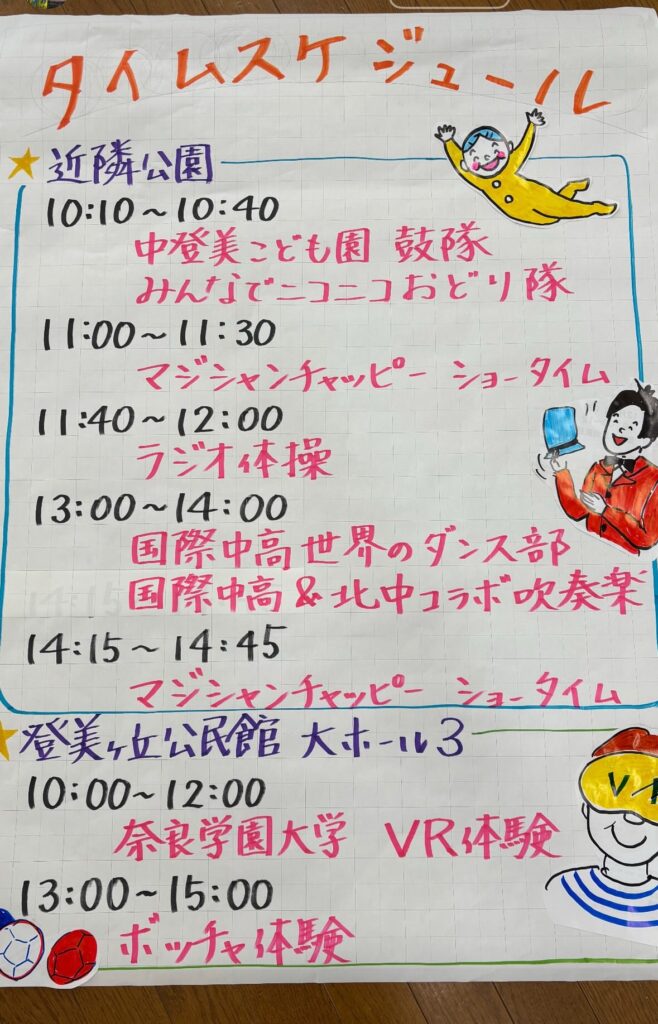 タイムスケジュール
近隣公園
10:10～10:40
中登美こども園 鼓隊
みんなでニコニコおどり隊
11:00～11:30
マジシャンチャッピー ショータイム
11:40～12:00
ラジオ体操
13:00～14:00
国際中高世界のダンス部
国際中高&北中コラボ吹奏楽
14:15～14:45
マジシャンチャッピー ショータイム
登美ヶ丘公民館 大ホール3
10:00～12:00
奈良学園大学 VR体験
13:00～15:00
ボッチャ体験